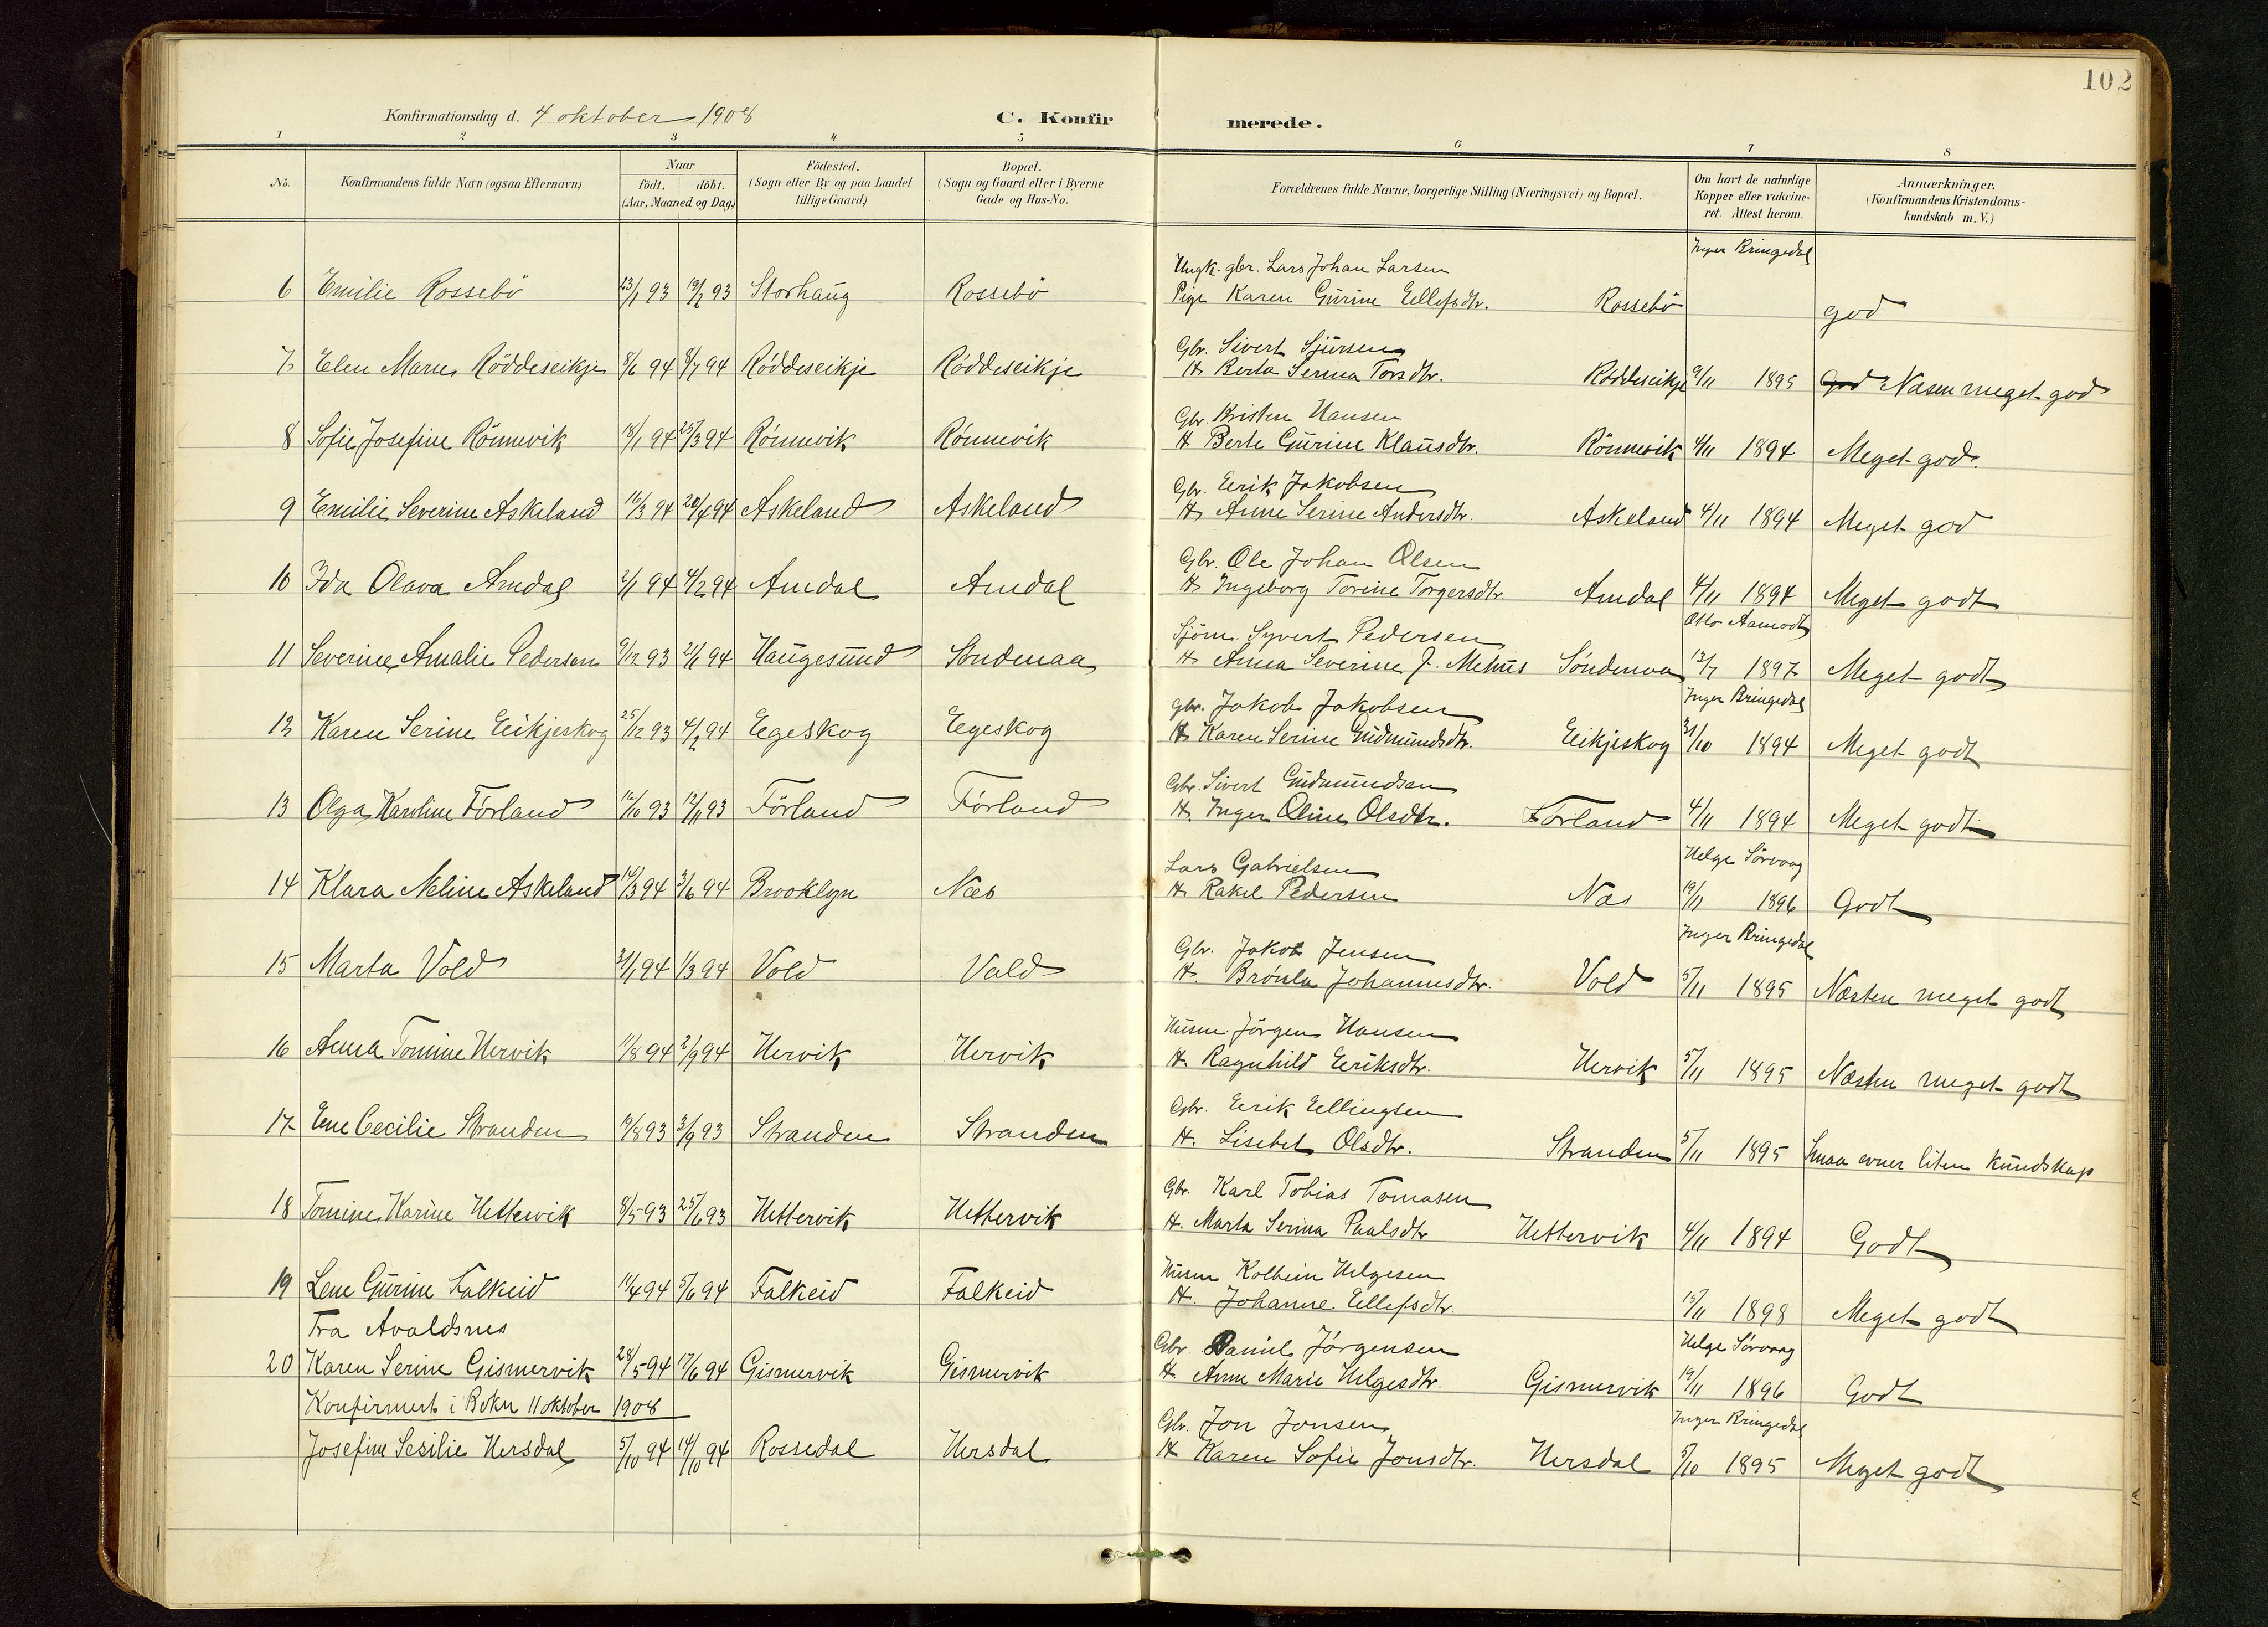 102
Konfirmationsdag d. 4 oktober 1908
C. Konfir merede.
1 2 3 4 5 6 7 8
No. Konfirmandens fulde Navn (ogsaa Efternavn) Naar födt. döbt. (Aar, Maaned og Dag) Födested. (Sogn eller By og paa Landet tillige Gaard) Bopæl. (Sogn og Gaard eller i Byerne Gade og Hus-No. Forældrenes fulde Navne, borgerlige Stilling (Næringsvei) og Bopæl. Om havt de naturlige Kopper eller vakcineret. Attest herom. Anmærkninger. (Konfirmandens Kristendomskundskab m. V.)
Ungk. gbr. Lars Johan Larsen Inger Bringedal
6 Emilie Rossebö 23/1 93 19/2 93 Storhaug Rossebö Pige Karen Gurine Ellefsdtr. Rossebö god
Gbr. Sivert Sjursen
7 Elen Marie Röddeseikje 8/6 94 8/7 94 Röddeseikje Röddeseikje H. Berta Serina Torsdtr. Röddeseikje 9/11 1895 God Næsten meget god
Gbr. Kristen Hansen
8 Sofie Josefine Rönnevik 18/1 94 25/3 94 Rönnevik Rönnevik H Berte Gurine Klausdtr. Rönnevik 4/11 1894 Meget god.
Gbr. Eerik Jakobsen
9 Emilie Severine Askeland 16/3 94 20/4 94 Askeland Askeland H. Anne Serine Andersdtr. Askeland 4/11 1894 Meget god
Gbr. Ole Johan Olsen
10 Ida Olava Amdal 2/1 94 4/2 94 Amdal Amdal H. Ingeborg Torine Torgersdtr. Amdal 4/11 1894 Meget godt
Sjöm. Syvert Pedersen Otto Aamodt
11 Severine Amalie Pedersen 9/12 93 21/1 94 Haugesund Söndenaa H. Anna Severine J. Mehus Söndenaa 12/7 1897 Meget godt
gbr. Jakob Jakobsen Inger Bringedal
12 Karen Serine Eikjeskog 25/12 93 4/2 94 Egeskog Egeskog H. Karen Serine Gudmundsdtr. Eikjeskog 31/10 1894 Meget godt
Gbr. Sivert Gudmundsen
13 Olga Karoline Förland 16/10 93 12/11 93 Förland Förland H. Inger Oline Olsdtr. Förland 4/11 1894 Meget godt
Lars Gabrielsen Helge Sörvaag
14 Klara Neline Askeland 14/3 94 3/6 94 Brooklyn Næs H. Rakel Pedersen Næs 19/11 1896 Godt
Gbr. Jakob Jensen Inger Bringedal
15 Marta Vold 21/1 94 1/3 94 Vold Vold H. Brönla Johannesdtr. Vold 5/11 1895 Næsten meget godt
Husm. Jörgen Hansen
16 Anna Tomine Hervik 11/8 94 2/9 94 Hervik Hervik H. Ragnhild Eeriksdtr. Hervik 5/11 1895 Næsten meget godt
Gbr. Eerik Ellingsen
17 Ene Cecilie Stranden 19/8 93 3/9 93 Stranden Stranden H. Lisebet Olsdtr. Stranden 5/11 1895 Smaa evner liten kundskap
Gbr. Karl Tobias Tomasen
18 Tomine Karine Hettervik 8/5 93 25/6 93 Hettervik Hettervik H. Marta Serina Paalsdtr Hettervik 4/11 1894 Godt
Husm Kolbein Helgesen
19 Lene Gurine Falkeid 11/4 94 5/6 94 Falkeid Falkeid H. Johanne Ellefsdtr. 15/11 1898 Meget godt
Fra Avaldsnes
Gbr. Daniel Jörgensen Helge Sörvaag
20 Karen Serine Gismervik 28/5 94 17/6 94 Gismervik Gismervik H. Anne Marie Helgesdtr. Gismervik 19/11 1896 Godt
Konfirmert i Bokn 11 oktober 1908
Gbr. Jon Jonsen Inger Bringedal
Josefine Sesilie Hersdal 5/10 94 14/10 94 Rossedal Hersdal H Karen Sofie Jonsdtr. Hersdal 5/10 1895 Meget godt